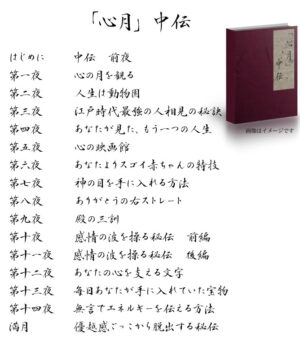 「心月」中伝
はじめに 中伝 前夜
第一夜 心の月を観る
第二夜 人生は動物園
第三夜 江戸時代最強の人相見の秘訣
第四夜 あなたが見た、もう一つの人生
第五夜 心の映画館
第六夜 あなたよりスゴイ赤ちゃんの特技
第七夜 神の目を手に入れる方法
第八夜 ありがとうの右ストレート
第九夜 殿の三訓
第十夜 感情の波を操る秘伝 前編
第十一夜 感情の波を操る秘伝 後編
第十二夜 あなたの心を支える文字
第十三夜 毎日あなたが手に入れていた宝物
第十四夜 無言でエネルギーを伝える方法
満月 優越感ごっこから脱出する秘伝
心月
中伝
画像はイメージです